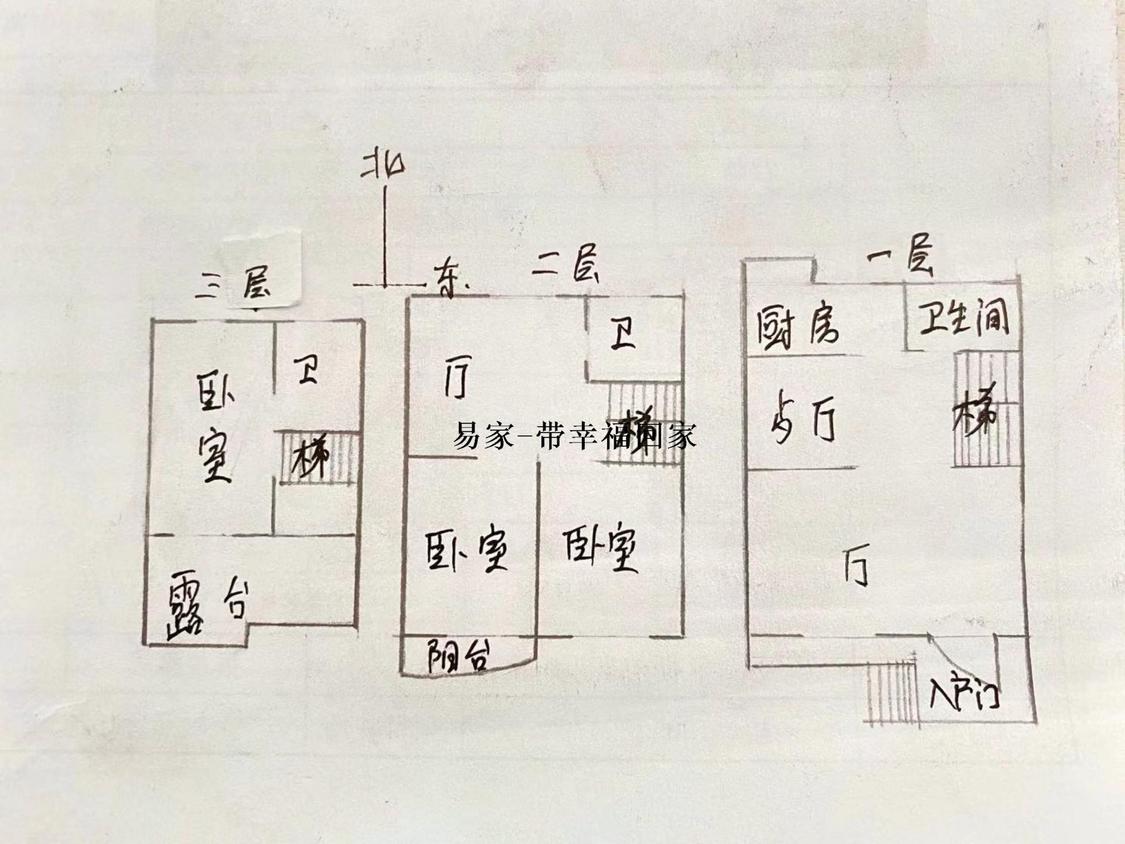 北
东
三层
卧室
卫
梯
露台
二层
厅
卫
梯
卧室
卧室
阳台
一层
厨房
卫生间
厅
梯
厅
入户门
易家-带幸福回家